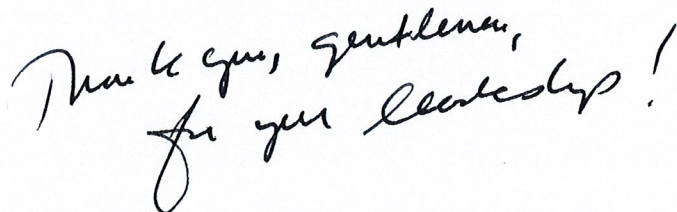 Thank you, gentlemen,
for your leadership!